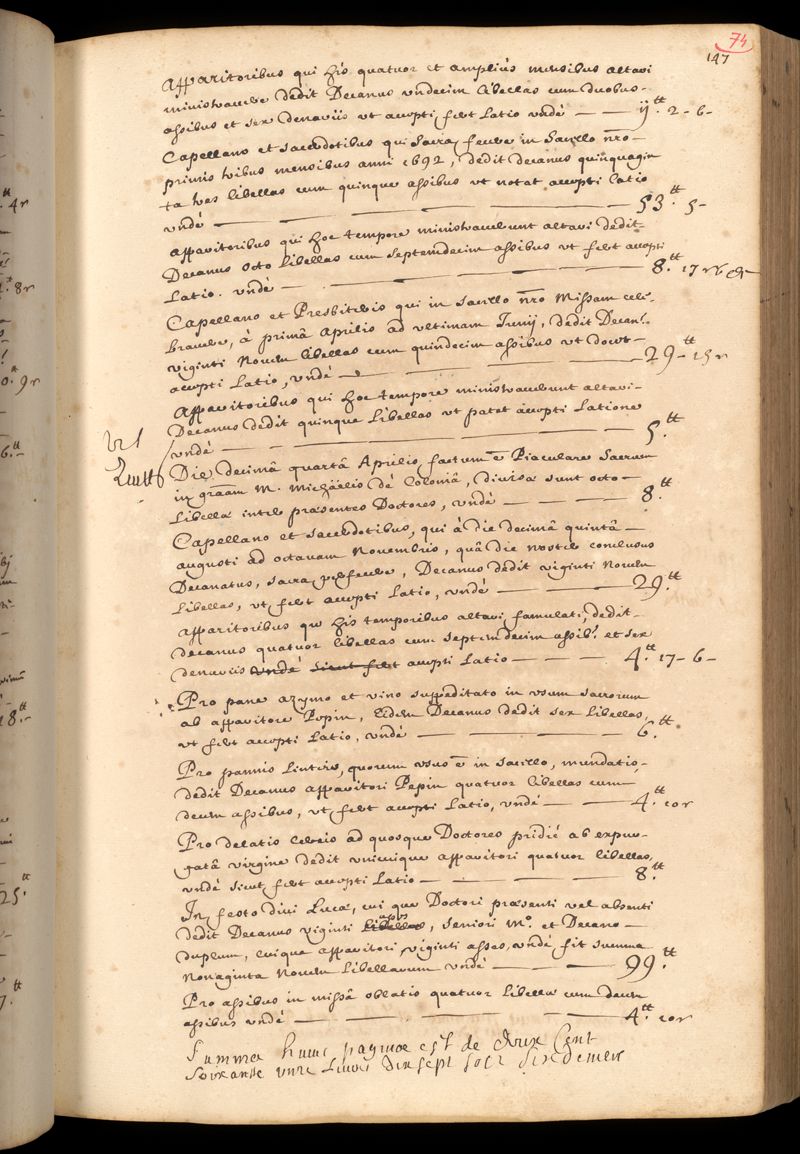 74
147
Apparitoribus qui his quatuor et ampliùs mensibus altari
ministrarunt dedit Decanus undecim libellas cum duobus
assibus et sex denariis ut accepti fert Latio undè — ij.tt 2-6-
Capellano et sacerdotibus qui sacra fecere in sacello nrō
primis tribus mensibus anni 1692, dedit decanus quinquagin
ta tres libellas cum quinque assibus ut notat accepti latio
undè — 53.tt 5-
Apparitoribus qui hoc tempore ministrarunt altari dedit
Decanus octo libellas cum septemdecim assibus ut fert accepti
Latio. undè — 8.tt 17
Capellano et Presbiteris qui in sacello nrō Missam cele-
brarunt, à primâ Aprilis ad ultimam Junij, dedit Decan9.
viginti Novem libellas cum quindecim assibus ut docet
accepti Latio, undè — 29-tt 15s
Apparitoribus qui hoc tempore ministrarunt altari
Decanus dedit quinque Libellas ut patet accepti Latione
undè — 5.tt
Die decimâ quartâ Aprilis factum ē Piaculare Sacrum
in grāam M. Michäelis de Coloniâ, divisa sunt octo
Libella inter præsentes Doctores, undè — 8.tt
Capellano et sacerdotibus, qui à die decimâ quintâ
augusti ad octavam Novembris, quâ die noster conclusus
Decanatus, sacra fecere, Decanus dedit viginti Novem
Libellas, ut fert accepti Latio, undè — 29.tt
Apparitoribus qui his temporibus altari famulati, dedit
decanus quatuor libellas cum septemdecim assib9. et sex
denariis undè sicut fert accepti Latio — 4.tt 17-6-
Pro pane azymo et vino suppeditato in usum sacrorum
ab apparitore Pepin, Eidem Decanus dedit sex Libellas,
ut fert accepti Latio, undè — 6.tt
Pro pannis linteis, quorum usus ē in sacello, mundatis,
dedit Decanus apparitori Pepin quatuor libellas cum
decem assibus, ut fert accepti Latio, undè — 4.tt 10s
Pro delatis cereis ad quosque Doctores pridiè ab expur-
gatâ virgine dedit unicuique apparitori quatuor libellas,
undè sicut fert accepti Latio — 8.tt
In festo divi Lucæ, cui que Doctori præsenti vel absenti
dedit Decanus viginti libellas asses, seniori M.o et Decano
duplum, cuique apparitori viginti asses, undè fit summa
Nonaginta Novem Libellarum undè — 99.tt
Pro assibus in missâ oblatis quatuor libella cum decem
assibus undè — 4.tt 10s
Summa huius paginae est de deux Cent
soixante unze Livres dix sept sols six deniers